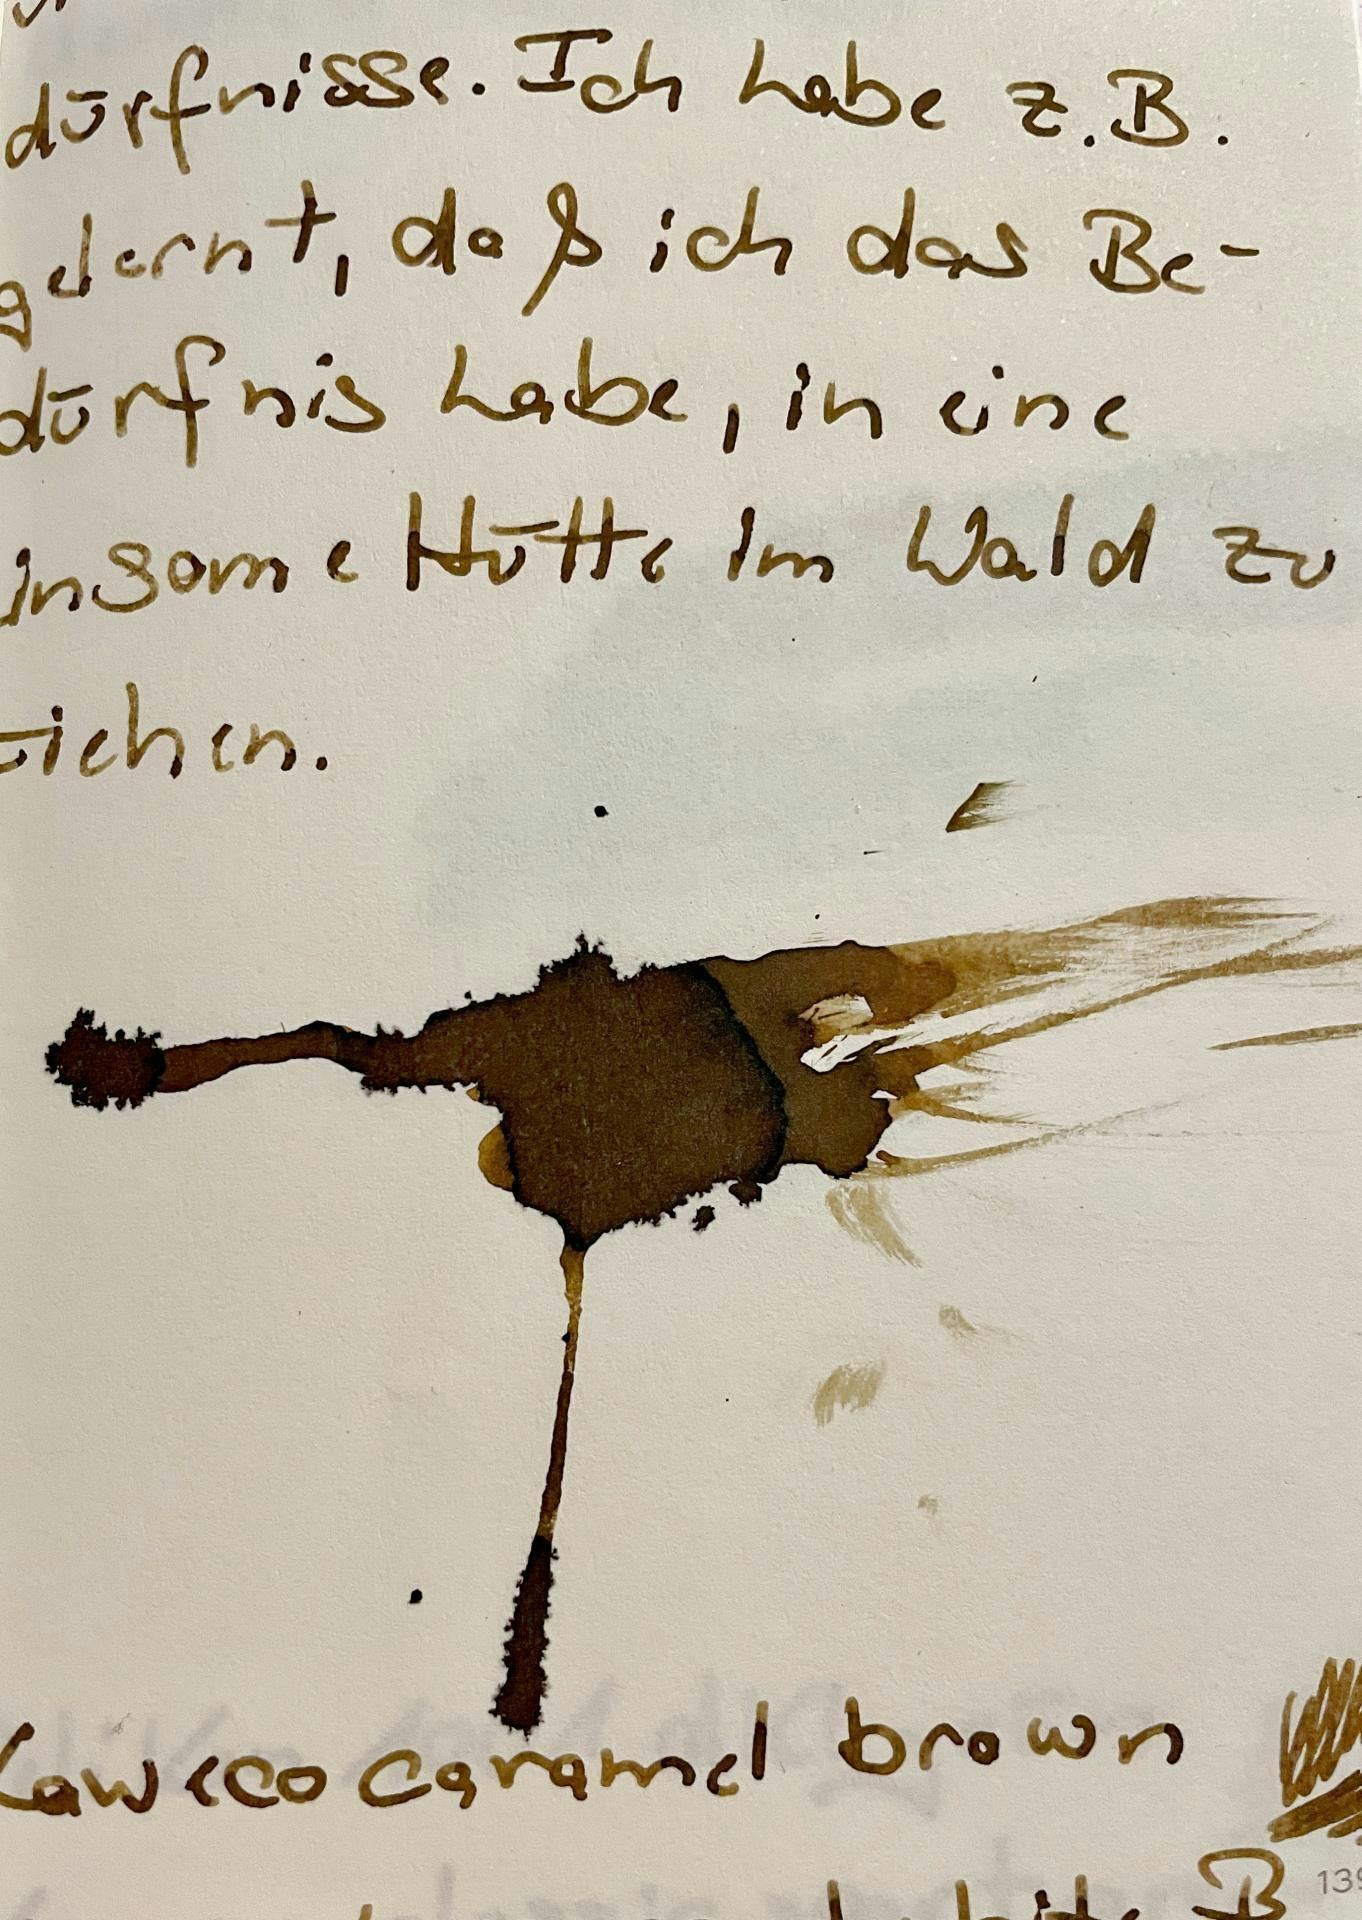 dürfnisse. Ich habe z.B.
gelernt, daß ich das Be-
dürfnis habe, in eine
insame Hütte im Wald zu
ziehen.
Kaweco Caramel brown
B
139